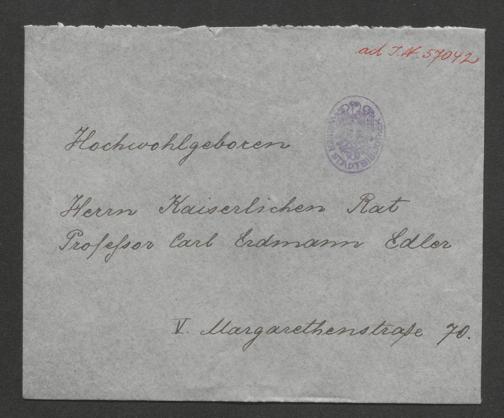 ad I.N. 57042
Hochwohlgeboren
Herrn Kaiserlichen Rat
Professor Carl Erdmann Edler
V. Margarethenstraße 70.